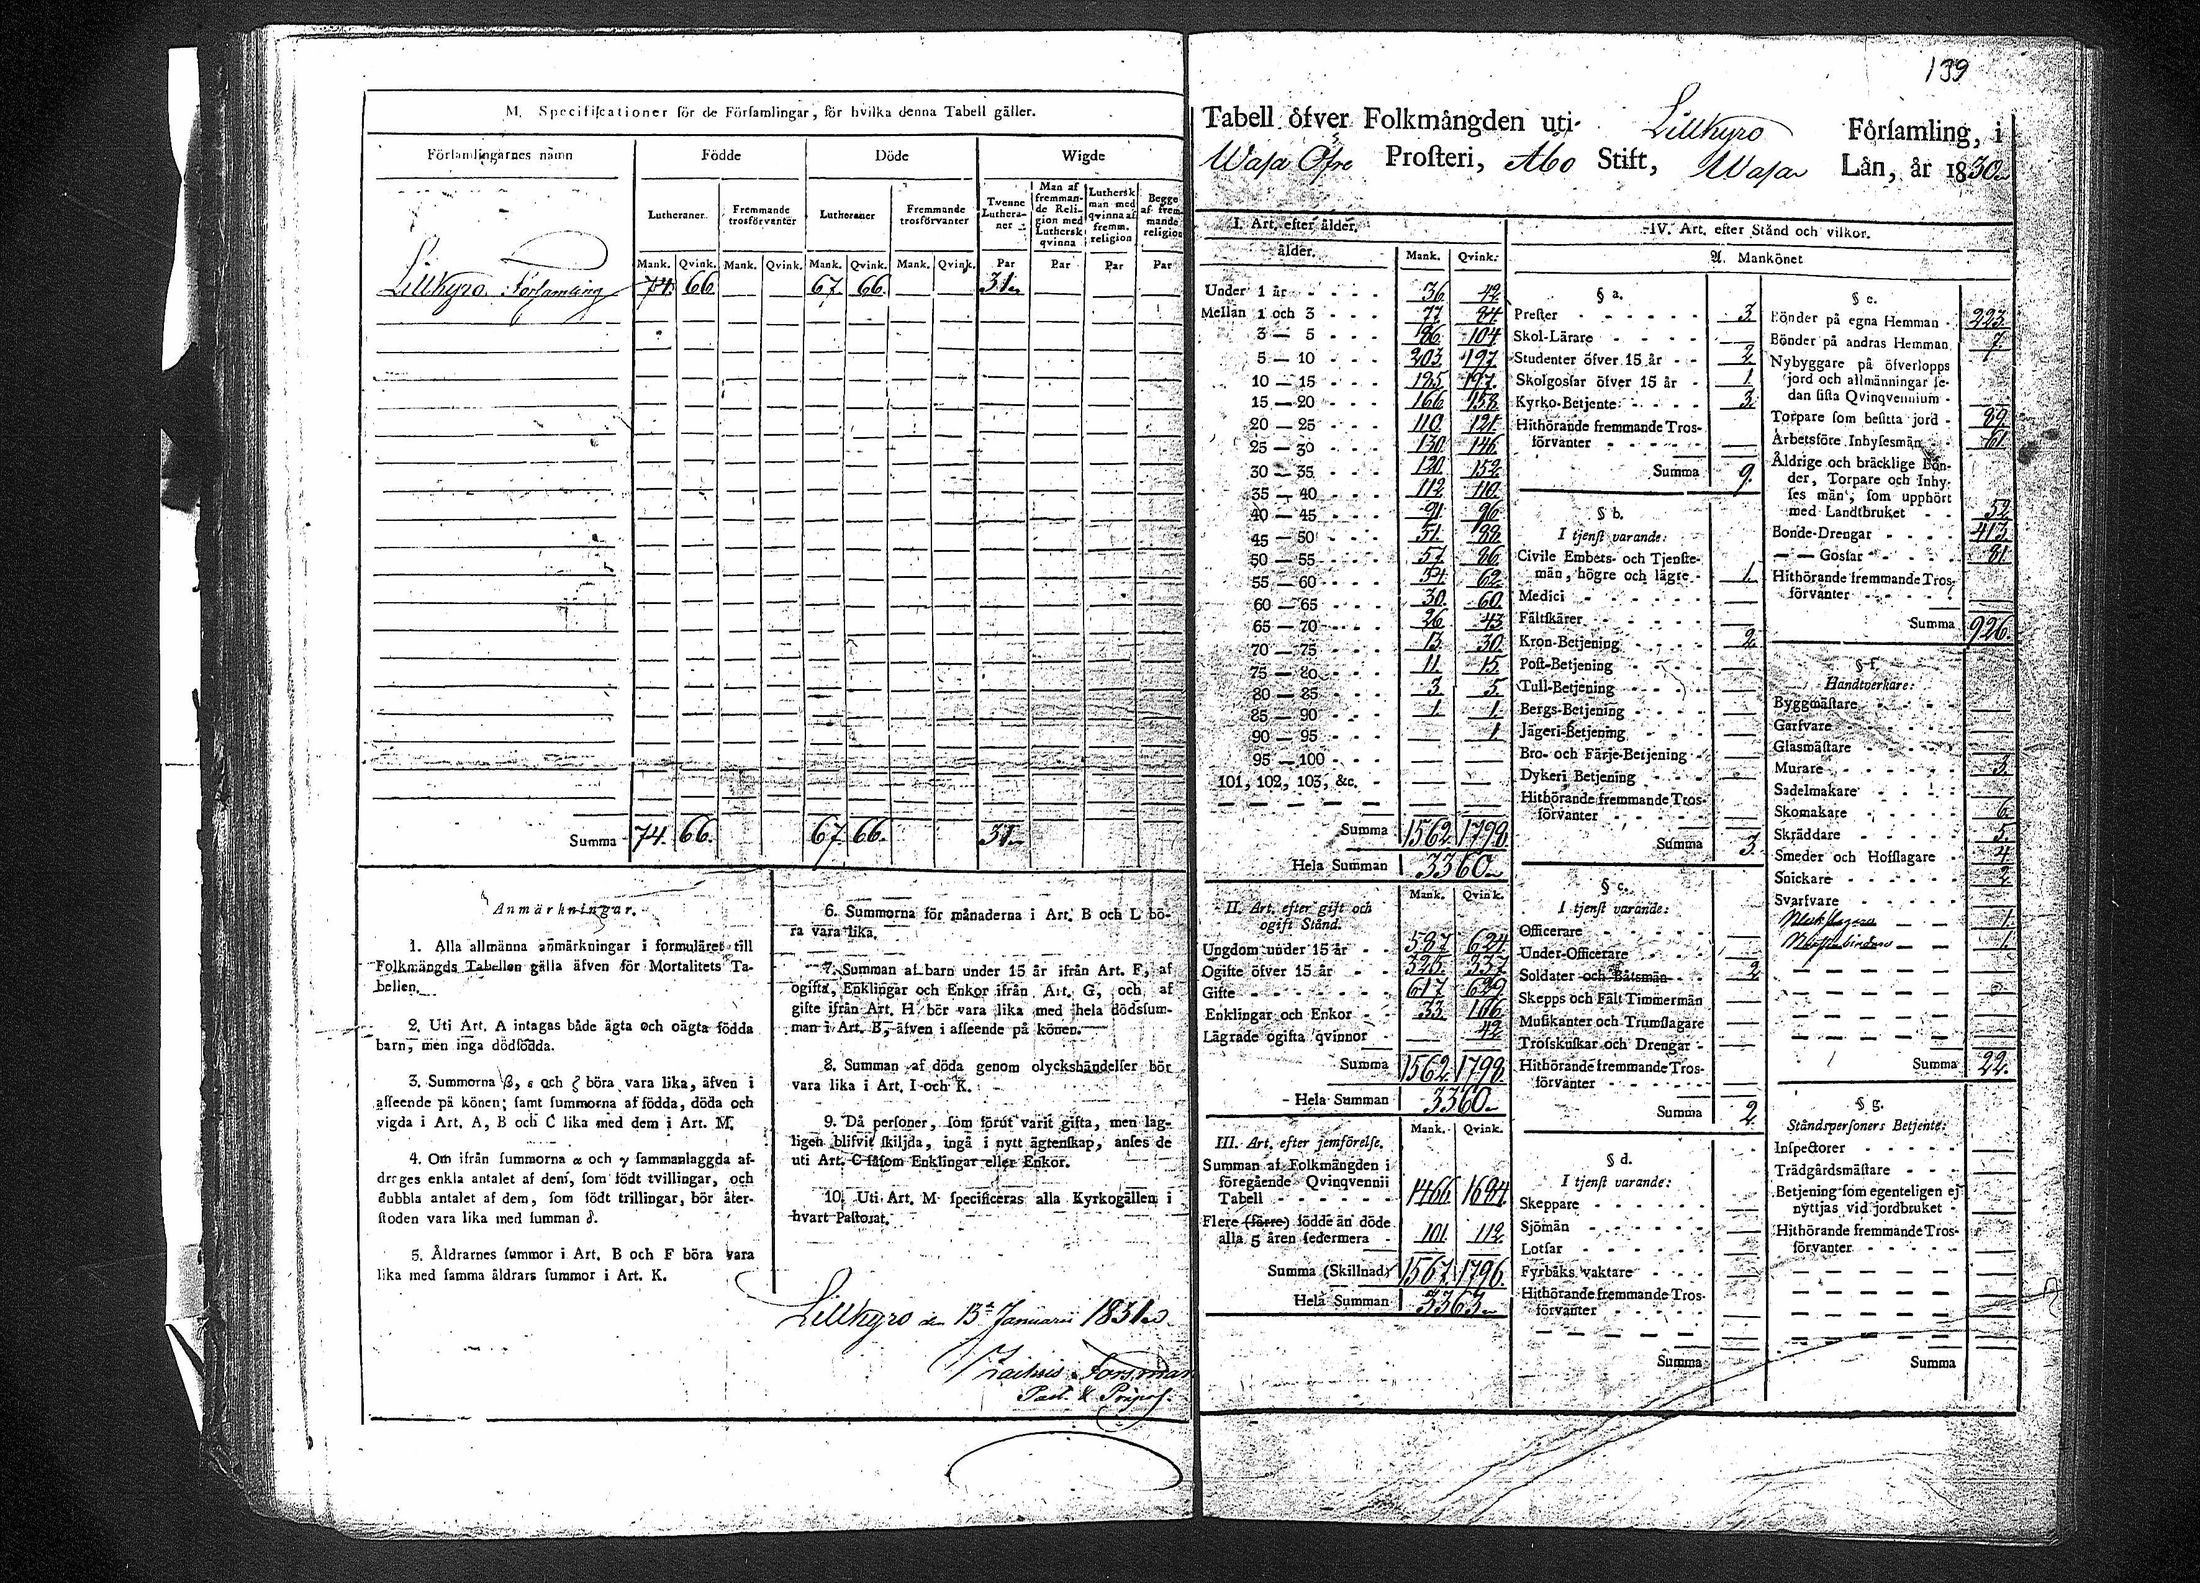 M. Specificationer för de Församlingar, för hvilka denna Tabell gäller.
Församlingarnes namn | Födde | Döde | Wigde
Lutheraner. | Fremmande trosförvanter | Lutheraner | Fremmande trosförvanter | Tvenne Lutheraner | Man af fremmande Religion med Luthersk qvinna | Luthersk man med qvinna af fremm. religion | Begge af fremmande religion
Mank. Qvink. Mank. Qvink. Mank. Qvink. Mank. Qvink. Par Par Par Par
Lillkyro Församling 74. 66. — — 67. 66. — — 31.
Summa 74. 66. 67. 66. 31.
Anmärkningar.
1. Alla allmänna anmärkningar i formuläret till
Folkmängds Tabellen gälla äfven för Mortalitets Ta-
bellen.
2. Uti Art. A intagas både ägta och oägta födda
barn, men inga dödfödda.
3. Summorna β, ε och ζ böra vara lika, äfven i
afseende på könen; samt summorna af födda, döda och
vigda i Art. A, B och C lika med dem i Art. M.
4. Om ifrån summorna α och γ sammanlaggda af-
drages enkla antalet af dem, som födt tvillingar, och
dubbla antalet af dem, som födt trillingar, bör åter-
stoden vara lika med summan δ.
5. Åldrarnes summor i Art. B och F böra vara
lika med samma åldrars summor i Art. K.
6. Summorna för månaderna i Art. B och L bö-
ra vara lika.
7. Summan af barn under 15 år ifrån Art. F, af
ogifta, Enklingar och Enkor ifrån Art. G, och af
gifte ifrån Art. H bör vara lika med hela dödssum-
man i Art. B, äfven i afseende på könen.
8. Summan af döda genom olyckshändelser bör
vara lika i Art. I och K.
9. Då personer, som förut varit gifta, men lag-
ligen blifvit skiljda, ingå i nytt ägtenskap, anses de
uti Art. C såsom Enklingar eller Enkor.
10. Uti Art. M specificeras alla Kyrkogällen i
hvart Pastorat.
Lillkyro den 13 Januarii 1831.
Forsman
Past. & Præpos.
139
Tabell öfver Folkmängden uti Lillkyro Församling, i
Wasa Öfre Prosteri, Åbo Stift, Wasa Län, år 1830.
I. Art. efter ålder.
ålder. Mank. Qvink.
Under 1 år 36 42
Mellan 1 och 3 77 84
3 — 5 86 104
5 — 10 203 197
10 — 15 185 197
15 — 20 166 158
20 — 25 110 121
25 — 30 130 146
30 — 35 120 152
35 — 40 112 110
40 — 45 91 96
45 — 50 51 88
50 — 55 57 86
55 — 60 34 62
60 — 65 30 60
65 — 70 26 43
70 — 75 13 30
75 — 80 11 15
80 — 85 3 5
85 — 90 1 1
90 — 95 — 1
95 — 100 — —
101, 102, 103, &c. — —
Summa 1562 1798
Hela Summan 3360
II. Art. efter gift och
ogift Stånd. Mank. Qvink.
Ungdom under 15 år 587 624
Ogifte öfver 15 år 325 337
Gifte 617 629
Enklingar och Enkor 33 166
Lägrade ogifta qvinnor — 42
Summa 1562 1798
Hela Summan 3360
III. Art. efter jemförelse. Mank. Qvink.
Summan af Folkmängden i
föregående Qvinqvennii
Tabell 1466 1684
Flere (färre) födde än döde
alla 5 åren sedermera 101 112
Summa (Skillnad) 1567 1796
Hela Summan 3363
IV. Art. efter Stånd och vilkor.
A. Mankönet
§ a.
Prester 3
Skol-Lärare
Studenter öfver 15 år 2
Skolgossar öfver 15 år 1
Kyrko-Betjente 3
Hithörande fremmande Tros-
förvanter
Summa 9.
§ b.
I tjenst varande:
Civile Embets- och Tjenste-
män, högre och lägre 1
Medici
Fältskärer
Kron-Betjening 2
Post-Betjening
Tull-Betjening
Bergs-Betjening
Jägeri-Betjening
Bro- och Färje-Betjening
Dykeri Betjening
Hithörande fremmande Tros-
förvanter
Summa 3.
§ c.
I tjenst varande:
Officerare
Under-Officerare
Soldater och Båtsmän 2
Skepps och Fält Timmermän
Musikanter och Trumslagare
Trosskuskar och Drengar
Hithörande fremmande Tros-
förvanter
Summa 2.
§ d.
I tjenst varande:
Skeppare
Sjömän
Lotsar
Fyrbåks vaktare
Hithörande fremmande Tros-
förvanter
Summa
§ e.
Bönder på egna Hemman 223
Bönder på andras Hemman 7
Nybyggare på öfverlopps
jord och allmänningar se-
dan sista Qvinqvennium
Torpare som besitta jord 89
Arbetsföre Inhysesmän 61
Åldrige och bräcklige Bön-
der, Torpare och Inhy-
ses män, som upphört
med Landtbruket 52
Bonde-Drengar 413
— — Gossar 81
Hithörande fremmande Tros-
förvanter
Summa 926.
§ f.
Handtverkare:
Byggmästare
Garfvare
Glasmästare
Murare 3
Sadelmakare
Skomakare 6
Skräddare 5
Smeder och Hofslagare 4
Snickare 2
Svarfvare
1
1
Summa 22.
§ g.
Ståndspersoners Betjente:
Inspector
Trädgårdsmästare
Betjening som egenteligen ej
nyttjas vid jordbruket
Hithörande fremmande Tros-
förvanter
Summa